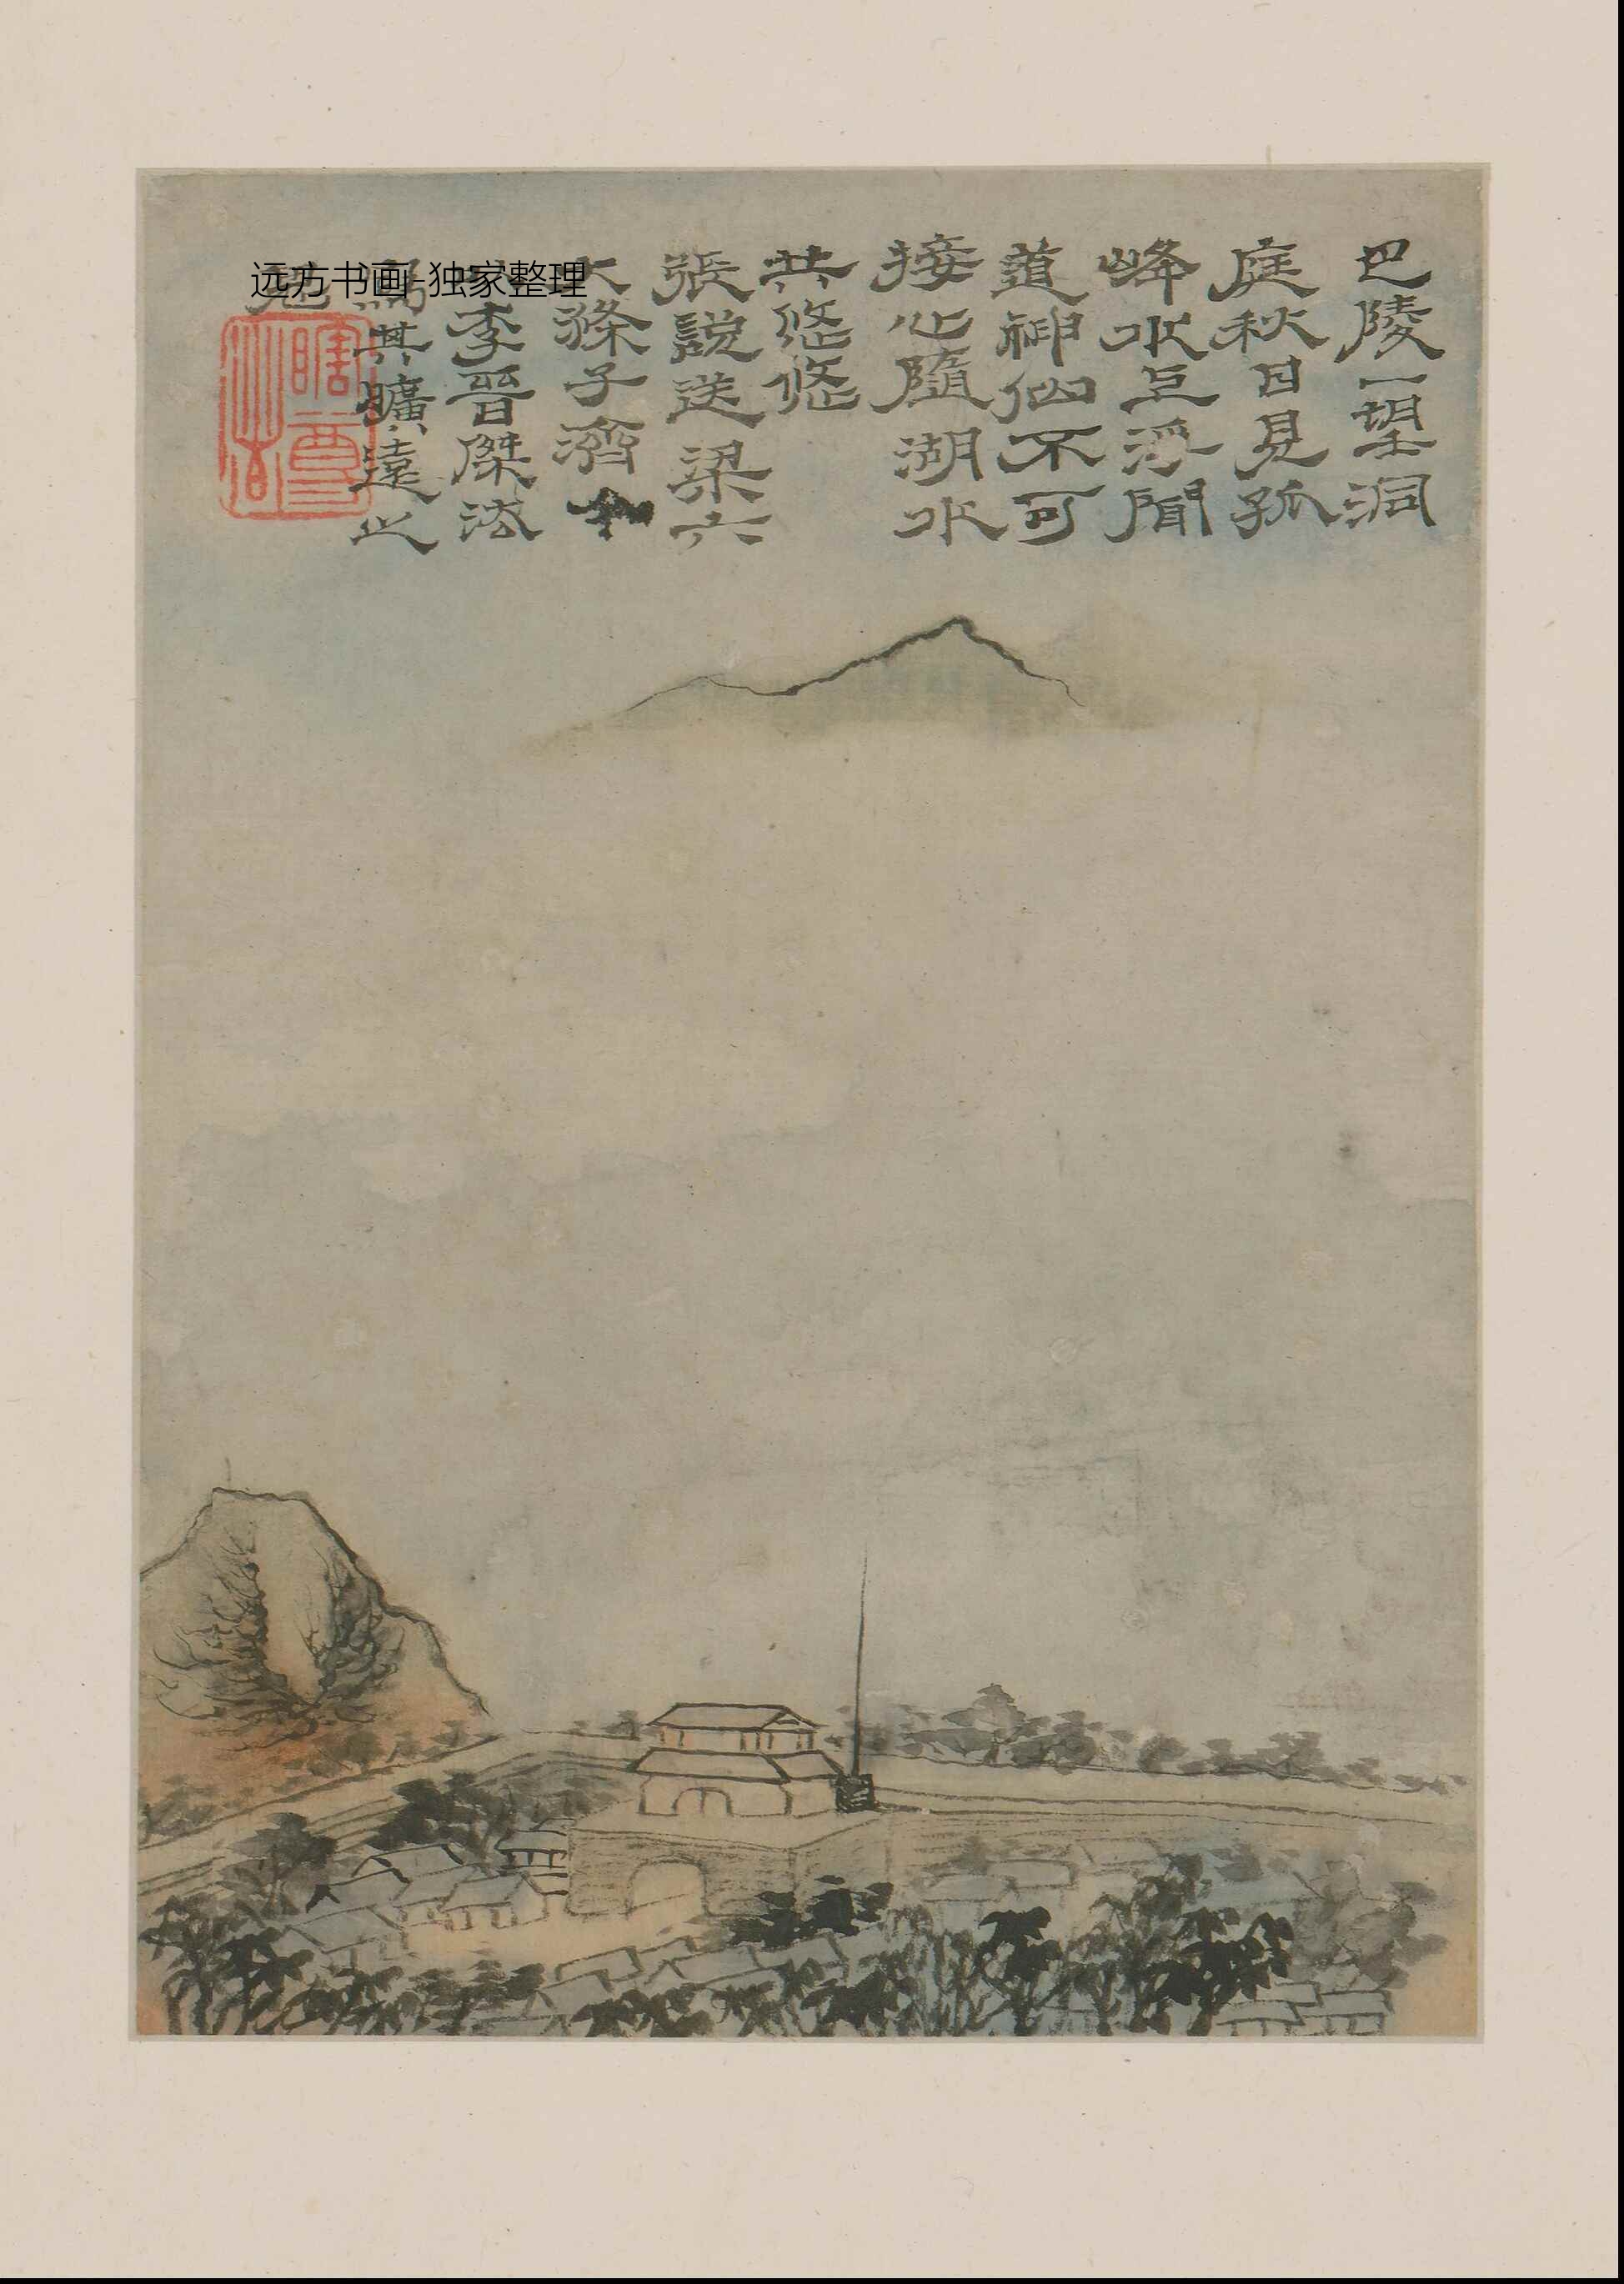 巴陵一望洞
庭秋日見孤
峰水上浮聞
道神仙不可
接心隨湖水
共悠悠
張說送梁六
大滌子濟
李晉傑法
其曠遠之
瞎尊者
远方书画 独家整理